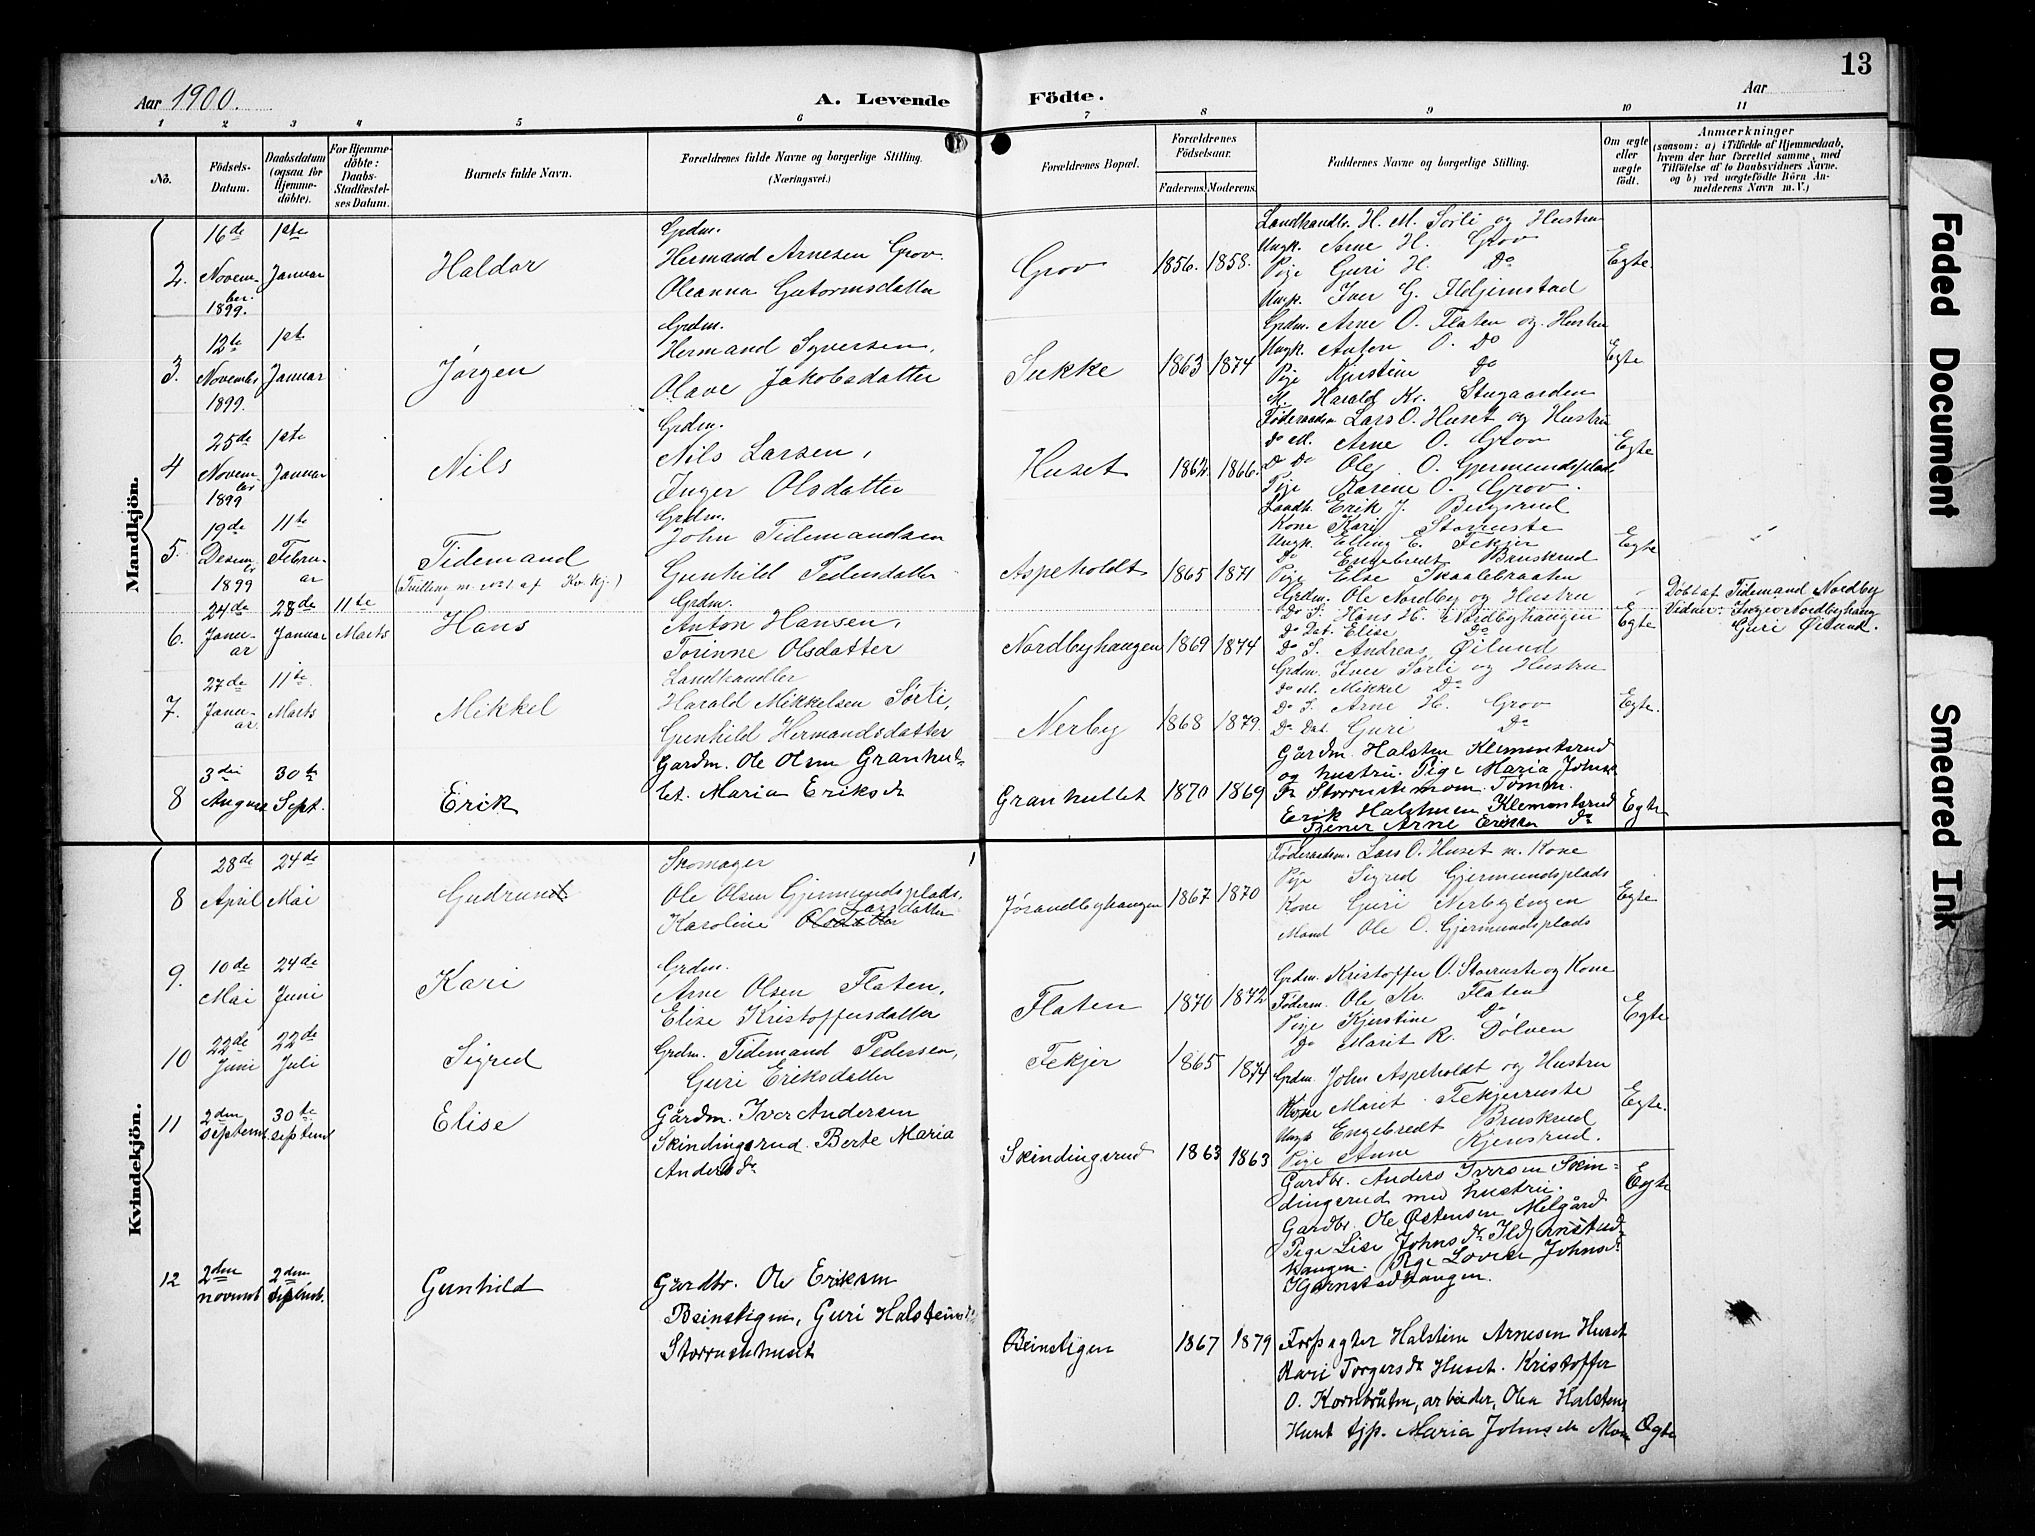 Aar 1900.
A. Levende Födte.
Aar
13
1 2 3 4 5 6 7 8 9 10 11
No.
Födsels-Datum.
Daabsdatum (ogsaa for Hjemmedöbte).
For Hjemmedöbte: Daabs-Stadfæstelses Datum.
Barnets fulde Navn.
Forældrenes fulde Navne og borgerlige Stilling. (Næringsvei.)
Forældrenes Bopæl.
Forældrenes Födselsaar.
Faderens. Moderens.
Faddernes Navne og borgerlige Stilling.
Om ægte eller uægte födt.
Anmærkninger (saasom: a) i Tilfælde af Hjemmedaab, hvem der har forrettet samme, med Tilföielse af to Daabsvidners Navne, og b) ved uægtefödte Börn Anmelderens Navn m. V.)
Mandkjön.
2. 16de November 1899. 1ste Januar
Haldor
Grdm.
Hermand Arnesen Grov.
Oleanna Gutormsdatter
Grov 1856. 1858.
Landhandlr. H. M. Sørli og Hustru
Ungk. Arne H. Grov
Pige Guri H. Do
Ungk. Iver G. Fldjernstad
Egte.
3. 12te Novembr 1899. 1ste Januar
Jørgen
Grdm.
Hermand Syversen,
Olave Jakobsdatter
Sukke 1863 1874
Grdm. Arne O. Flaten og Hustru
Ungk. Anton O. Do
Pige Kjerstine Do
M. Harald Kr. Stugaarden
Egte
4 25de Novembr 1899 1ste Januar
Nils
Grdm.
Nils Larsen,
Inger Olsdatter
Huset 1862. 1866.
Føderaadsm Lars O. Huset og Hustru
Do M. Arne O. Grov
Do Do Ole O. Gjermundsplads
Pige Karene O. Grov.
Egte
5. 19de Desembr 1899 11te Februar
Tidemand
(Tvilling m. No 1 af Kv. kj.)
Grdm.
John Tidemandsen
Gunhild Pedersdatter
Aspeholdt 1865 1871
Landh. Erik J. Bergsrud
Kone Kari Storruste
Ungk. Elling E. Fekjer
Do Engebredt Bruskrud
Pige Else Skaalebraaten
Egte
6. 24de Januar 28de Januar 11te Marts
Hans
Grdm.
Anton Hansen,
Torinne Olsdatter
Nordbyhaugen 1869 1874
Grdm. Ole Nordby og Hustru
Do S. Hans H. Nordbyhaugen
Do Dat. Elise Do
Do S. Andreas Øilund
Egte
Døbt af Tidemand Nordby
Vidner: Inger Nordbyhaug
Guri Øilund.
7. 27de Januar. 11te Marts
Mikkel
Landhandler
Harald Mikkelsen Sørli,
Gunhild Hermandsdatter
Nerby 1868 1879.
Grdm. Iver Sørli og Hustru
Do M. Mikkel Do
Do S. Arne H. Grov
Do Dat. Guri Do
Egte.
8 3die August 30te Sept.
Erik
Gardm. Ole Olsen Granhul-
let. Maria Eriksdr
Granhullet 1870 1869
Gårdm. Halsten Klemontsrud
og hustru. Pige Maria Johns
Dr Storrustemoen. Tømm.
Erik Halstensen Klemontsrud
Tjener Arne Eriksen Do
Egte
Kvindekjön.
8 28de April 24de Mai
Gudrun
Skomager
Ole Olsen Gjermundsplads,
Karoline Olsdatter Larsdatter
Jøsandbyhaugen 1867 1870
Føderaadsm. Lars O. Huset m. Kone
Pige Sigred Gjermundsplads
Kone Guri Nerbyengen
Mand Ole O. Gjermundsplads
Egte
9. 10de Mai 24de Juni
Kari
Grdm.
Arne Olsen Flaten,
Elise Kristoffersdatter
Flaten 1870 1872
Grdm. Kristoffer O. Storruste og Kone
Føderm. Ole Kr. Flaten
Pige Kjerstine Do
Do Marit R. Dølven
Egte
10 22de Juni 22de Juli
Sigred
Grdm. Tidemand Pedersen,
Guri Eriksdatter
Fekjer 1865 1874
Grdm. John Aspeholdt og Hustru
Kone Marit Fekjerruste
Ungk Engebredt Bruskrud
Pige Anne Kjensrud.
Egte.
11 2den septemb. 30te septemb
Elise
Gårdm. Iver Andersen
Skindingsrud. Berte Maria
Andersdr
Skindingsrud 1863 1863
Gardbr. Anders Iversen Skin=
dingsrud med hustru.
Gardbr. Ole Østensen Melgård
Pige Lise Johnsdr Ildjernstad-
haugen. Pige Lovise Johnsdr
Ildjernstadhaugen.
Egte
12 2den novemb 2den
Gunhild
Gardbr. Ole Eriksen
Beinstigen, Guri Halsteinsd.
Storrustehuset
Beinstigen 1867 1879
Forpagter Halsten Arnesen Huset
Kari Torgersdr Huset. Kristoffer
O. Kornbråten, arbeider, Olea Halstens
Huset tjp. Maria Johnsdr Moen
Ægte
Faded Document
Smeared Ink